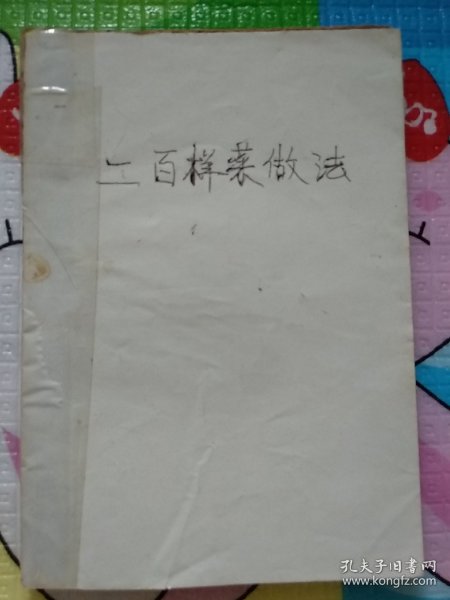 百样菜做法
孔夫子旧书网
www.kongfz.com